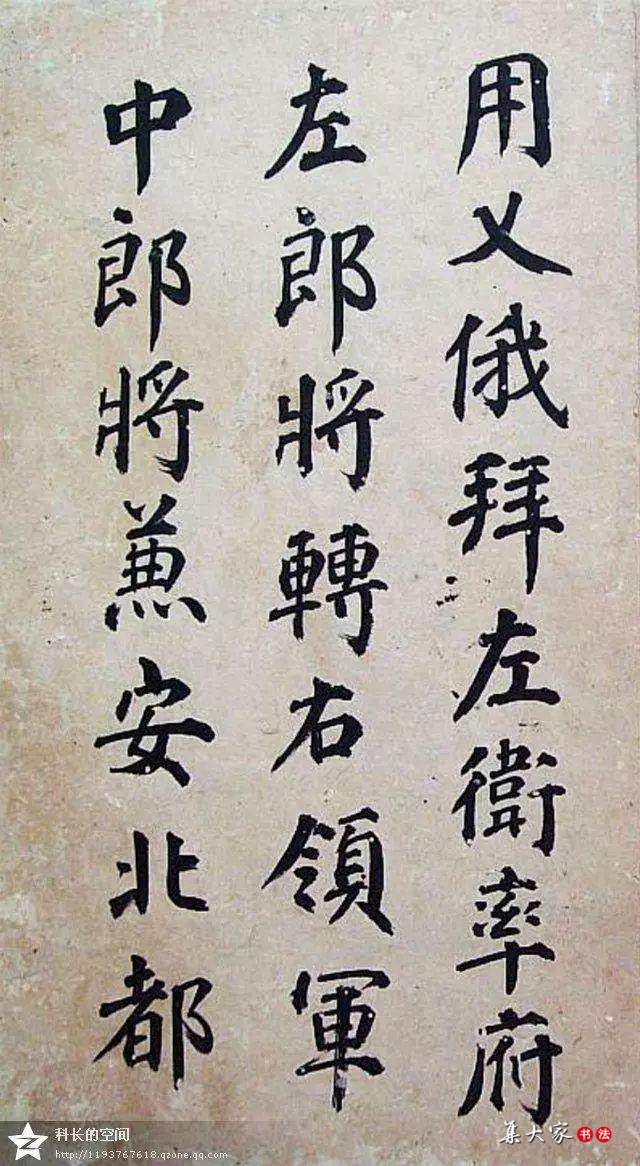 用乂俄拜左衛率府
左郎將轉右領軍
中郎將兼安北都
科长的空间
http://1193767618.qzone.qq.com
集大家 书法